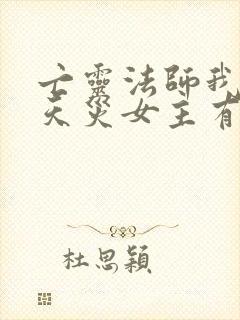 亡靈法師我
天災女主有
杜思穎